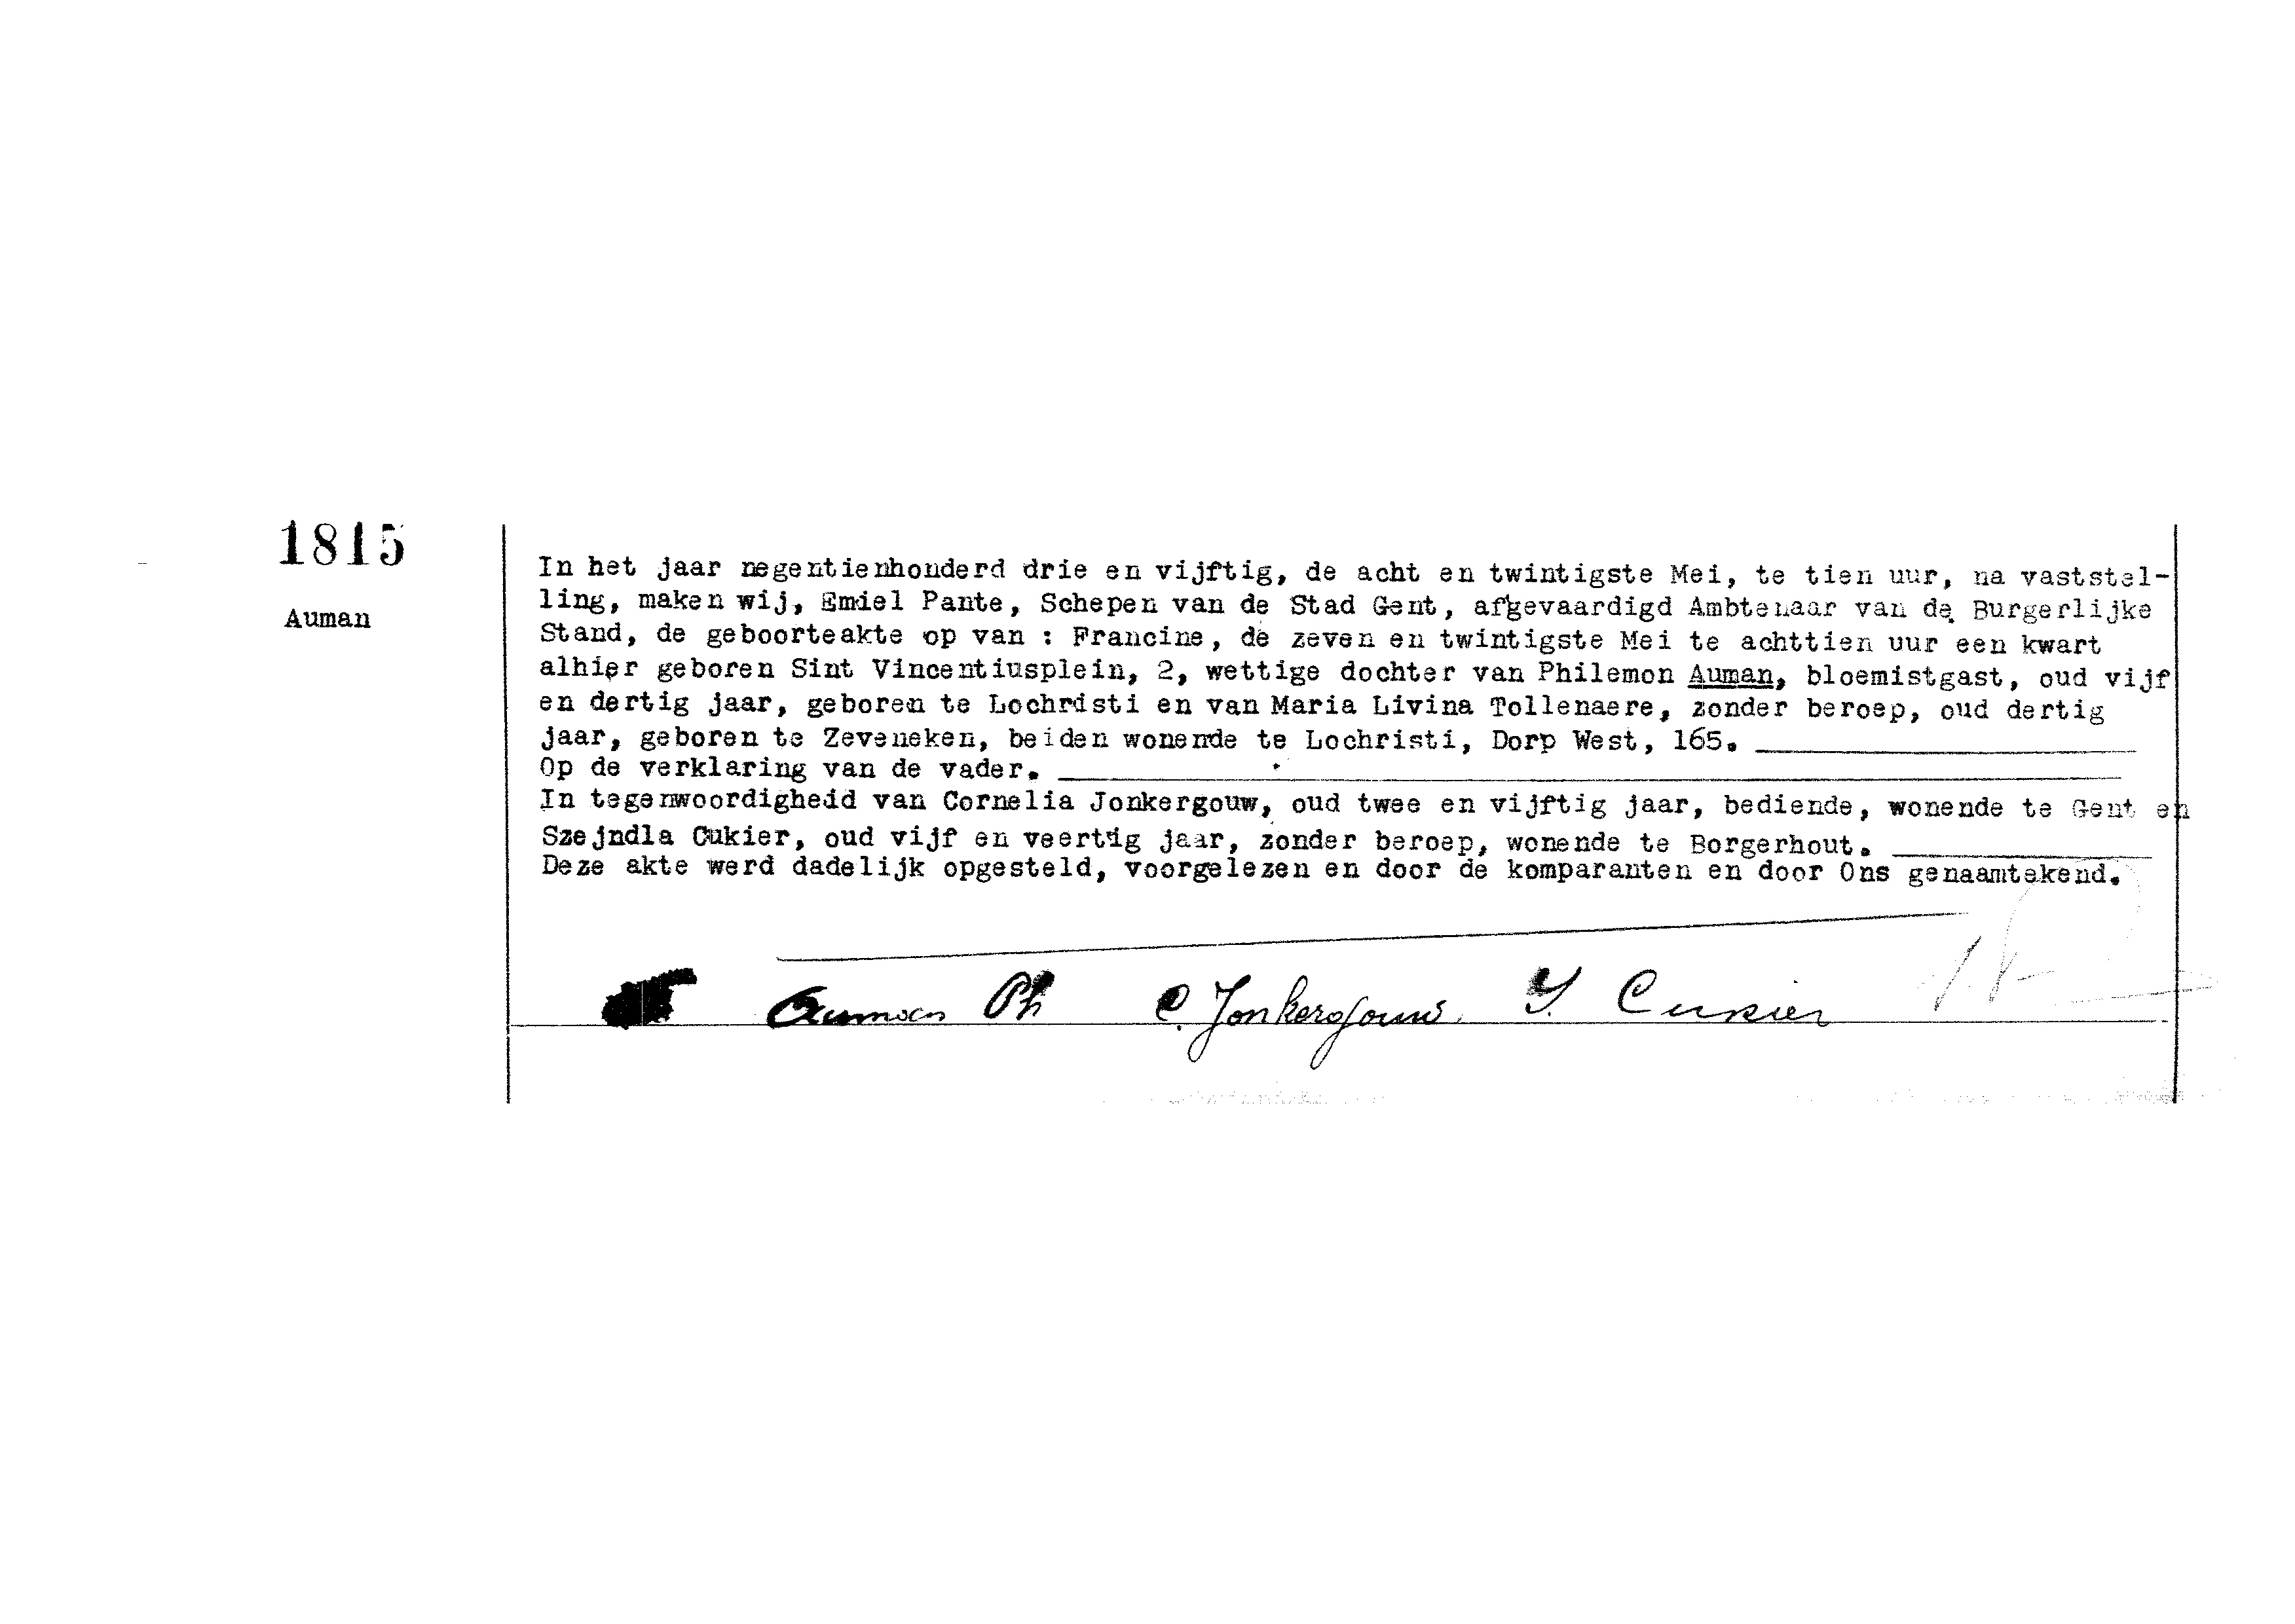 1815
Auman
In het jaar negentienhonderd drie en vijftig, de acht en twintigste Mei, te tien uur, na vaststel-
ling, maken wij, Emiel Pante, Schepen van de Stad Gent, afgevaardigd Ambtenaar van de Burgerlijke
Stand, de geboorteakte op van : Francine, de zeven en twintigste Mei te achttien uur een kwart
alhier geboren Sint Vincentiusplein, 2, wettige dochter van Philemon Auman, bloemistgast, oud vijf
en dertig jaar, geboren te Lochristi en van Maria Livina Tollenaere, zonder beroep, oud dertig
jaar, geboren te Zeveneken, beiden wonende te Lochristi, Dorp West, 165.
Op de verklaring van de vader.
In tegenwoordigheid van Cornelia Jonkergouw, oud twee en vijftig jaar, bediende, wonende te Gent en
Szejndla Cukier, oud vijf en veertig jaar, zonder beroep, wonende te Borgerhout.
Deze akte werd dadelijk opgesteld, voorgelezen en door de komparanten en door Ons genaamtekend.
Auman Ph C. Jonkergouw. Y. Cukier